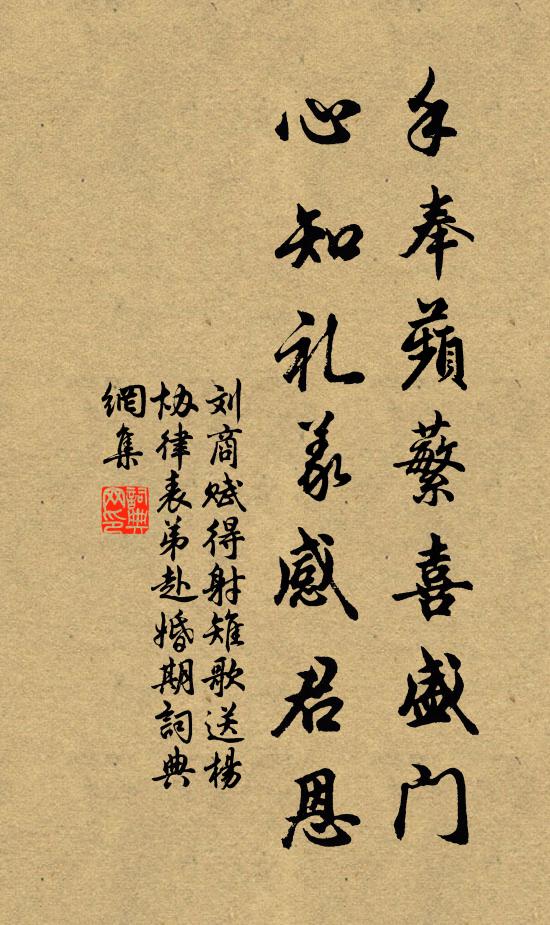 手奉蘋蘩喜盛门
心知礼义感君恩
刘商赋得射雉歌送楊
协律表弟赴婚期詞典
網集
詞典
网印